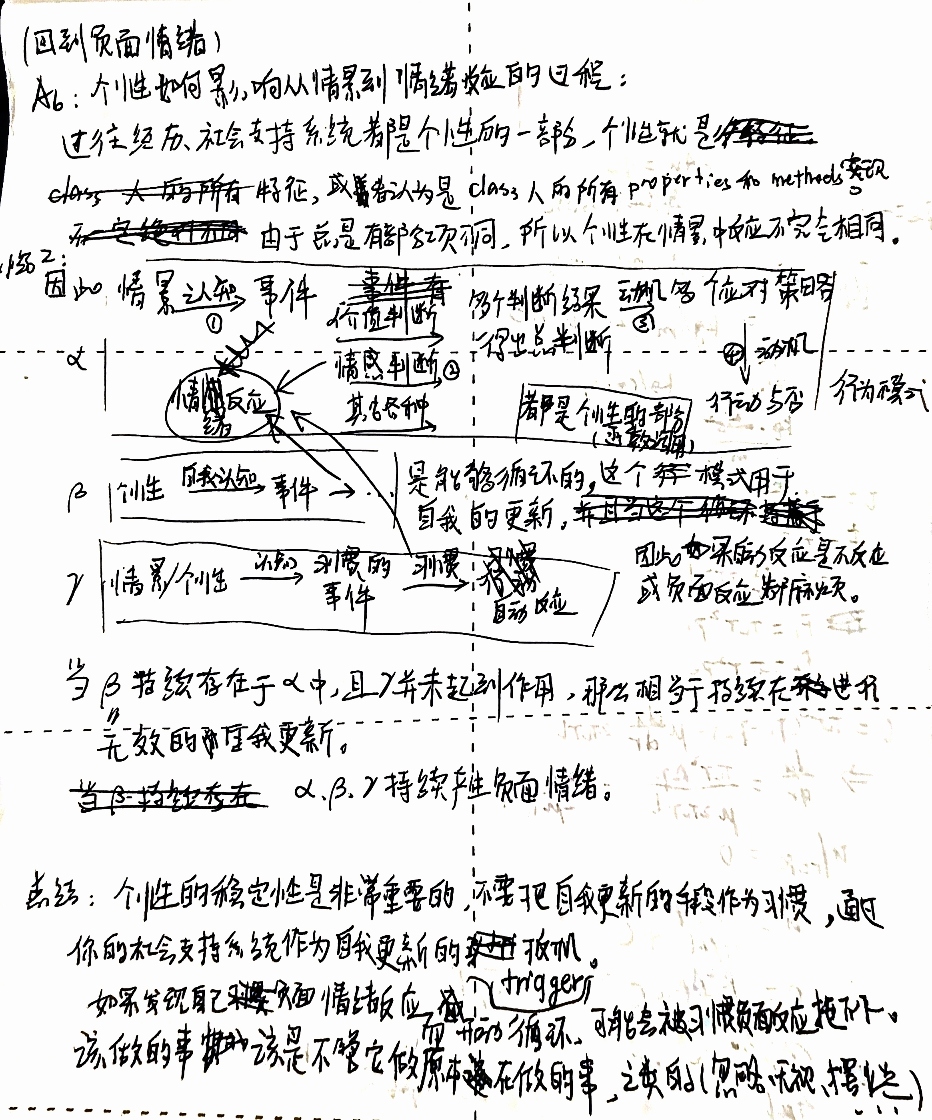 (回到负面情绪)
A6: 个性如何影响从情景到情绪反应的过程:
过往经历、社会支持系统都是个性的一部分，个性就是
特征，或者认为是 class 人的所有 properties 和 methods 实现
由于总是有部分项不同，所以个性在情景中反应不完全相同。
因此 情景 认知 事件 价值判断 多个判断结果 动机 多个应对策略
① 得出总判断 ③
α 情感判断 ② ④ 动机
情绪反应 其它各种 都是个性的部分 行动与否 行为模式
β 个性 自我认知 事件 → … 是能够循环的，这个模式用于
自我的更新，
γ 情景/个性 认知 习惯的事件 习惯 自动反应
因此如果自动反应是不反应
或负面反应都麻烦。
当 β 持续存在于 α 中，且 γ 并未起到作用，那么相当于持续在进行
无效的自我更新。
α、β、γ 持续产生负面情绪。
总结: 个性的稳定性是非常重要的，不要把自我更新的手段作为习惯，通过
你的社会支持系统作为自我更新的
trigger
如果发现自己负面情绪反应 而开启循环、可能会被习惯负面反应拖下水。
该做的事 该是不管它做原本在做的事，之类的(忽略、无视、摆烂)